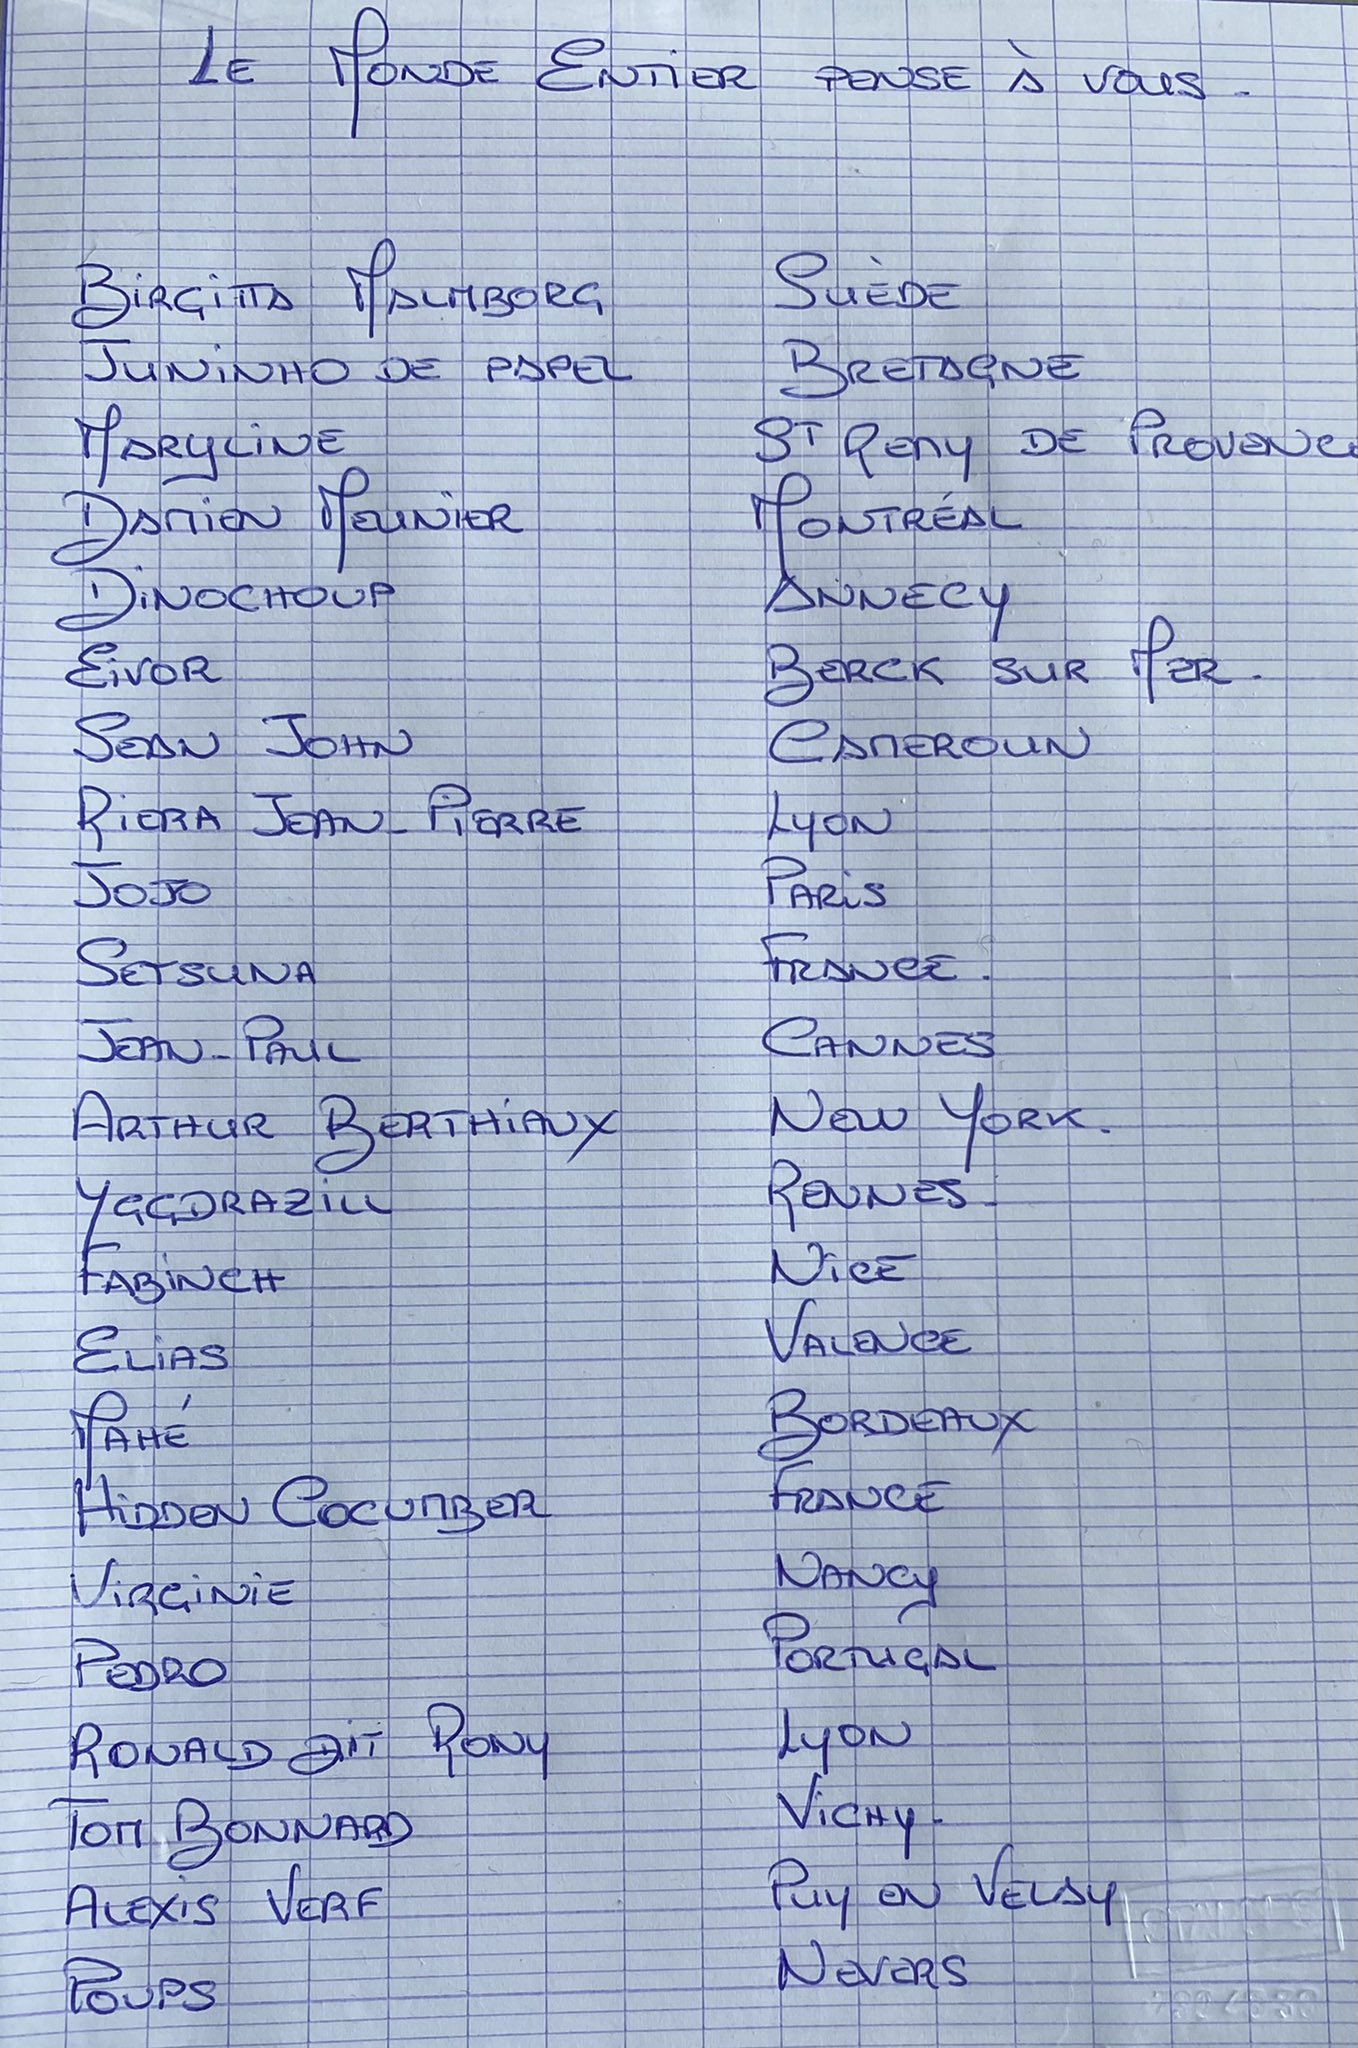 LE MONDE ENTIER PENSE À VOUS.
BIRGITTA MALMBORG SUÈDE
JUNINHO DE PAPEL BRETAGNE
MARYLINE ST REMY DE PROVENC
DAMIEN MEUNIER MONTRÉAL
DINOCHOUP ANNECY
EIVOR BERCK SUR MER.
SEAN JOHN CAMEROUN
RIERA JEAN-PIERRE LYON
JOJO PARIS
SETSUNA FRANCE.
JEAN-PAUL CANNES
ARTHUR BERTHIAUX NEW YORK.
YGGDRAZILL RENNES-
FABINCH NICE
ELIAS VALENCE
MAHÉ BORDEAUX
HIDDEN COCUMBER FRANCE
VIRGINIE NANCY
PEDRO PORTUGAL
RONALD DIT RONY LYON
TOM BONNARD VICHY-
ALEXIS VERF PUY EN VELAY
POUPS NEVERS